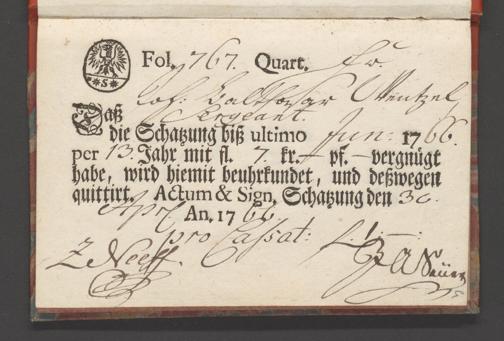 *S*
Fol. 767. Quart. Hr.
Joh: Balthasar Wentzel
Sergeant.
Daß
die Schatzung biß ultimo Jun: 1766.
per 13. Jahr mit fl. 7. kr. — pf. — vergnügt
habe, wird hiemit beuhrkundet, und deßwegen
quittirt. Actum & Sign. Schatzung den 30.
Apr. An. 1766.
pro Cassat:
Z Neeff.